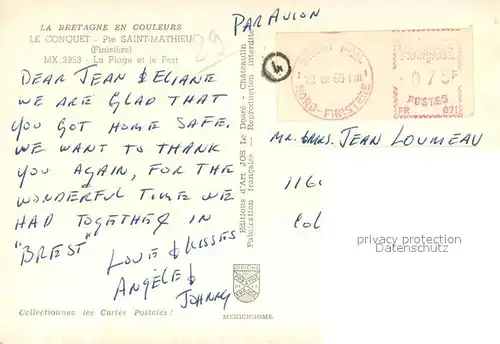 LA BRETAGNE EN COULEURS
LE CONQUET - Pte SAINT-MATHIEU
(Finistère)
MX. 2953 - La Plage et le Port
29
PAR AVION
DEAR JEAN & ELIANE
WE ARE GLAD THAT
YOU GOT HOME SAFE.
WE WANT TO THANK
YOU AGAIN, FOR THE
WONDERFUL TIME WE
HAD TOGETHER IN
"BREST"
LOVE & KISSES
ANGÈLE &
JOHNNY
Editions d'Art JOS Le Doaré - Châteaulin
Publication française - Reproduction interdite
NORD-FINISTERE
075F
POSTES
PR 071
MR. & MRS. JEAN LOUMEAU
116
Col
privacy protection
watermark
Collectionnez les Cartes Postales !
MEXICHROME